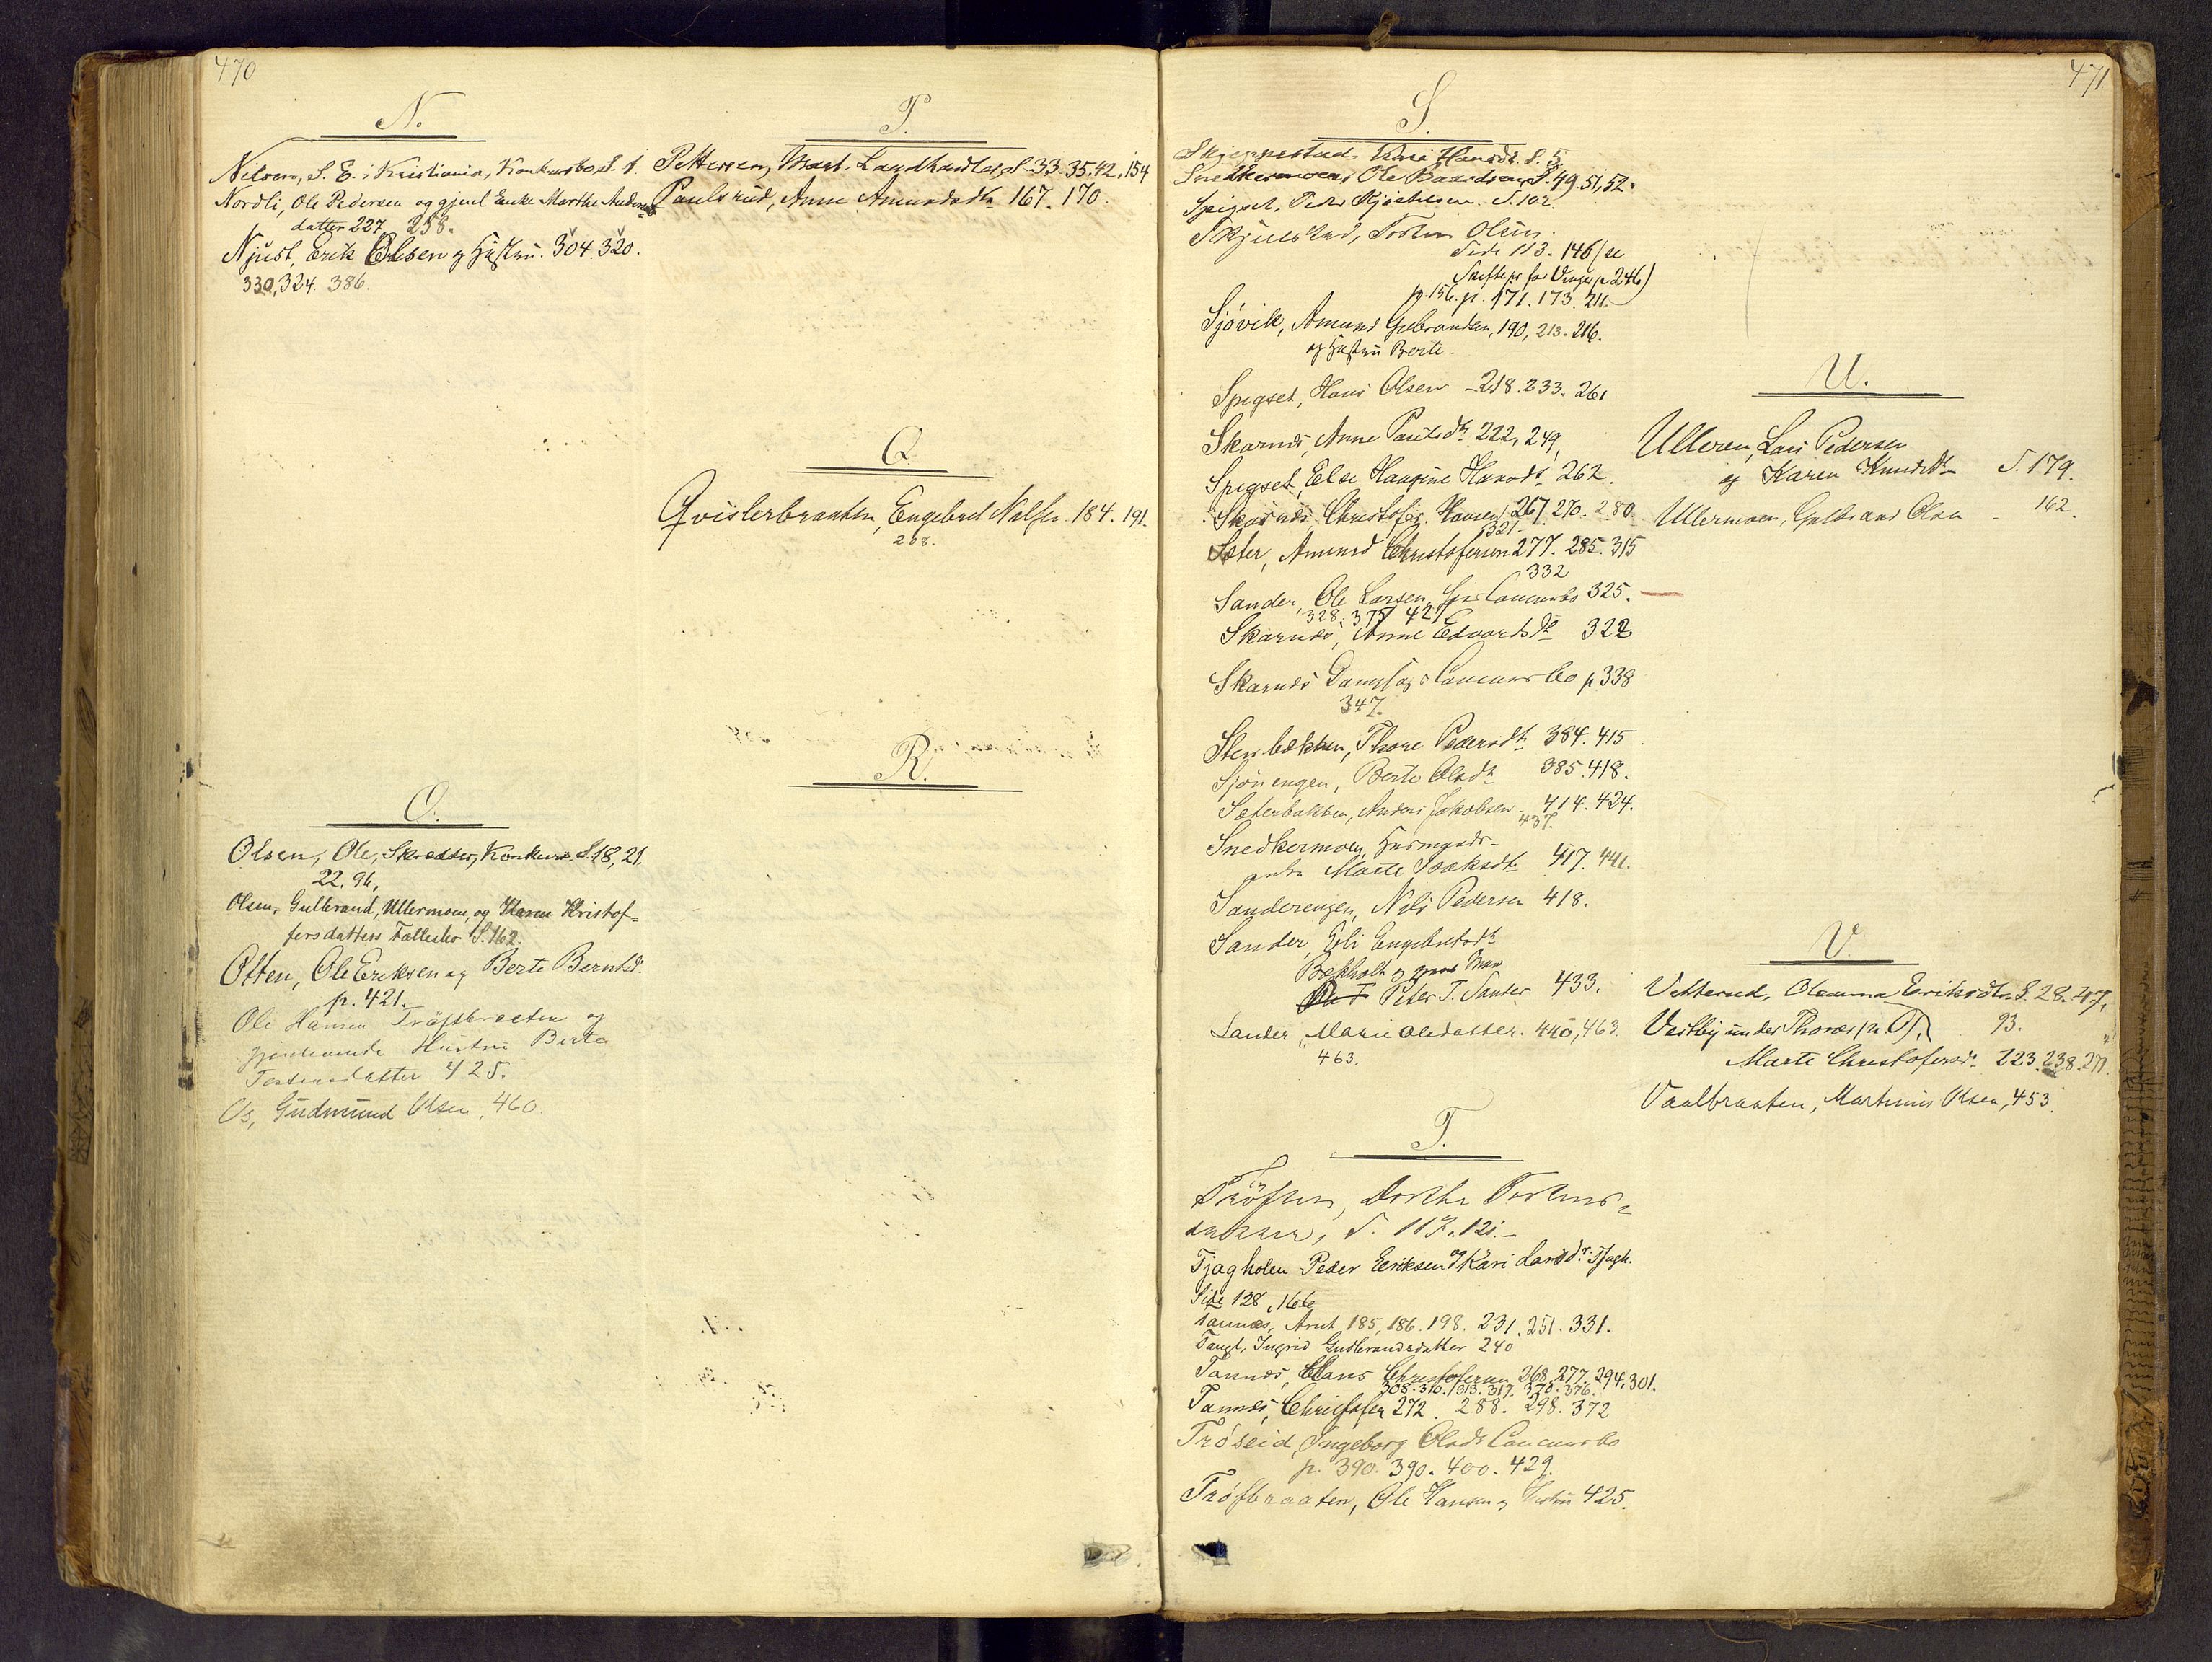 470
N.
Nilsen, S. E. i Kristiania, Konkursbo S. 1.
Nordli, Ole Pedersen og gjenl Enke Marthe Anders
datter 227, 258.
Njust, Erik Olsen og Hustru. 304. 320.
330, 324. 386.
O.
Olsen, Ole, Skrædder, Konkurs S. 18, 21.
22. 96,
Olsen, Gulbrand, Ullermoen, og Karen Kristof-
fersdatters Fællesbo S. 162.
Often, Ole Eriksen og Berte Berntsd.
p. 421.
Ole Hansen Tröftbraaten og
gjenlevende Hustru Berte
Tostensdatter 425.
Os, Gudmund Olsen, 460.
P.
Pettersen, Mart. Landhandler S. 33. 35. 42. 154
Paulsrud, Anne Amundsdtr 167. 170.
Q
Qvislerbraaten, Engebret Nilsen 184. 191.
208.
R.
471.
S.
Skjeppestad, Kari Hansdtr. S. 5.
Snedkermoen, Ole Baardsen S. 49. 51, 52.
Spigset, Peder Kjøstelsen. S. 102.
Skjulstad, Torsten Olsen.
Side 113. 146 (se
Skiftepr for Vinger p 246)
p. 156. p. 171. 173. 211.
Sjövik, Amund Gulbrandsen, 190, 213. 216.
og Hustru Berte.
Spigset, Hans Olsen - 218. 233. 261
Skarnæs, Anne Paulsdtr 222, 249,
Spigset, Else Haagine Hansdtr 262.
Skarnæs Christofer Hansen 267. 270. 280.
321
Sæter, Amund Christofersen 277. 285. 315
332
Sander, Ole Larsen, Concursbo 325. —
328. 375 421
Skarnæs, Anne Edvardsdtr 322
Skarnæs Dampsag Concursbo p 338
347.
Stenbækken, Thore Pedersdtr 384. 415
Sjönengen, Berte Olsdtr 385. 418.
Sæterbakken, Anders Jakobsen 414. 424.
437.
Snedkermoen, Husmands-
enke Marte Isaksdtr 417. 441.
Sanderengen, Nils Pedersen 418.
Sander, Eli Engebretsdtr
Bækholt og Man
Peter T. Sander 433.
Sander, Marie Olsdatter. 440, 463.
463.
T.
Tröften, Dorthe Torstens-
datter, S. 117. 121. -
Tjagholen Peder Eriksen og Kari Larsdr. Tjagh.
Side 128, 166
Tannæs, Arnt, 185, 186. 198. 231. 251. 331.
Taugl, Ingrid Gudbrandsdatter 240
Tannæs, Hans Christofersen 268. 277. 294. 301.
308. 310. 313. 317. 370. 376.
Tannæs, Christofer 272. 288. 298. 372
Tröseid, Ingeborg Olsdtr Concursbo
p. 390. 390. 400. 429.
Tröftbraaten, Ole Hansen og Hustru 425.
U.
Ulleren, Lars Pedersen
og Karen Knudsdtr S. 179.
Ullermoen, Gulbrand Olsen - 162.
V.
Vetterud, Oleanna Eriksdtr. S. 28. 47,
Vestby under Thoræs 93.
Marte Christofersd. 223. 238. 271.
Vaalbraaten, Martinius Olsen, 453.